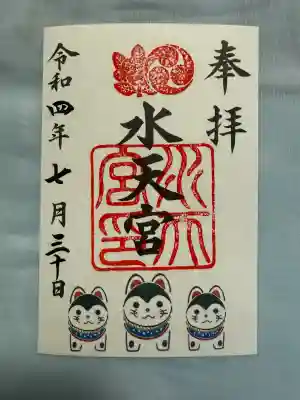 奉拝
水天宮
水天宮印
令和四年七月三十日